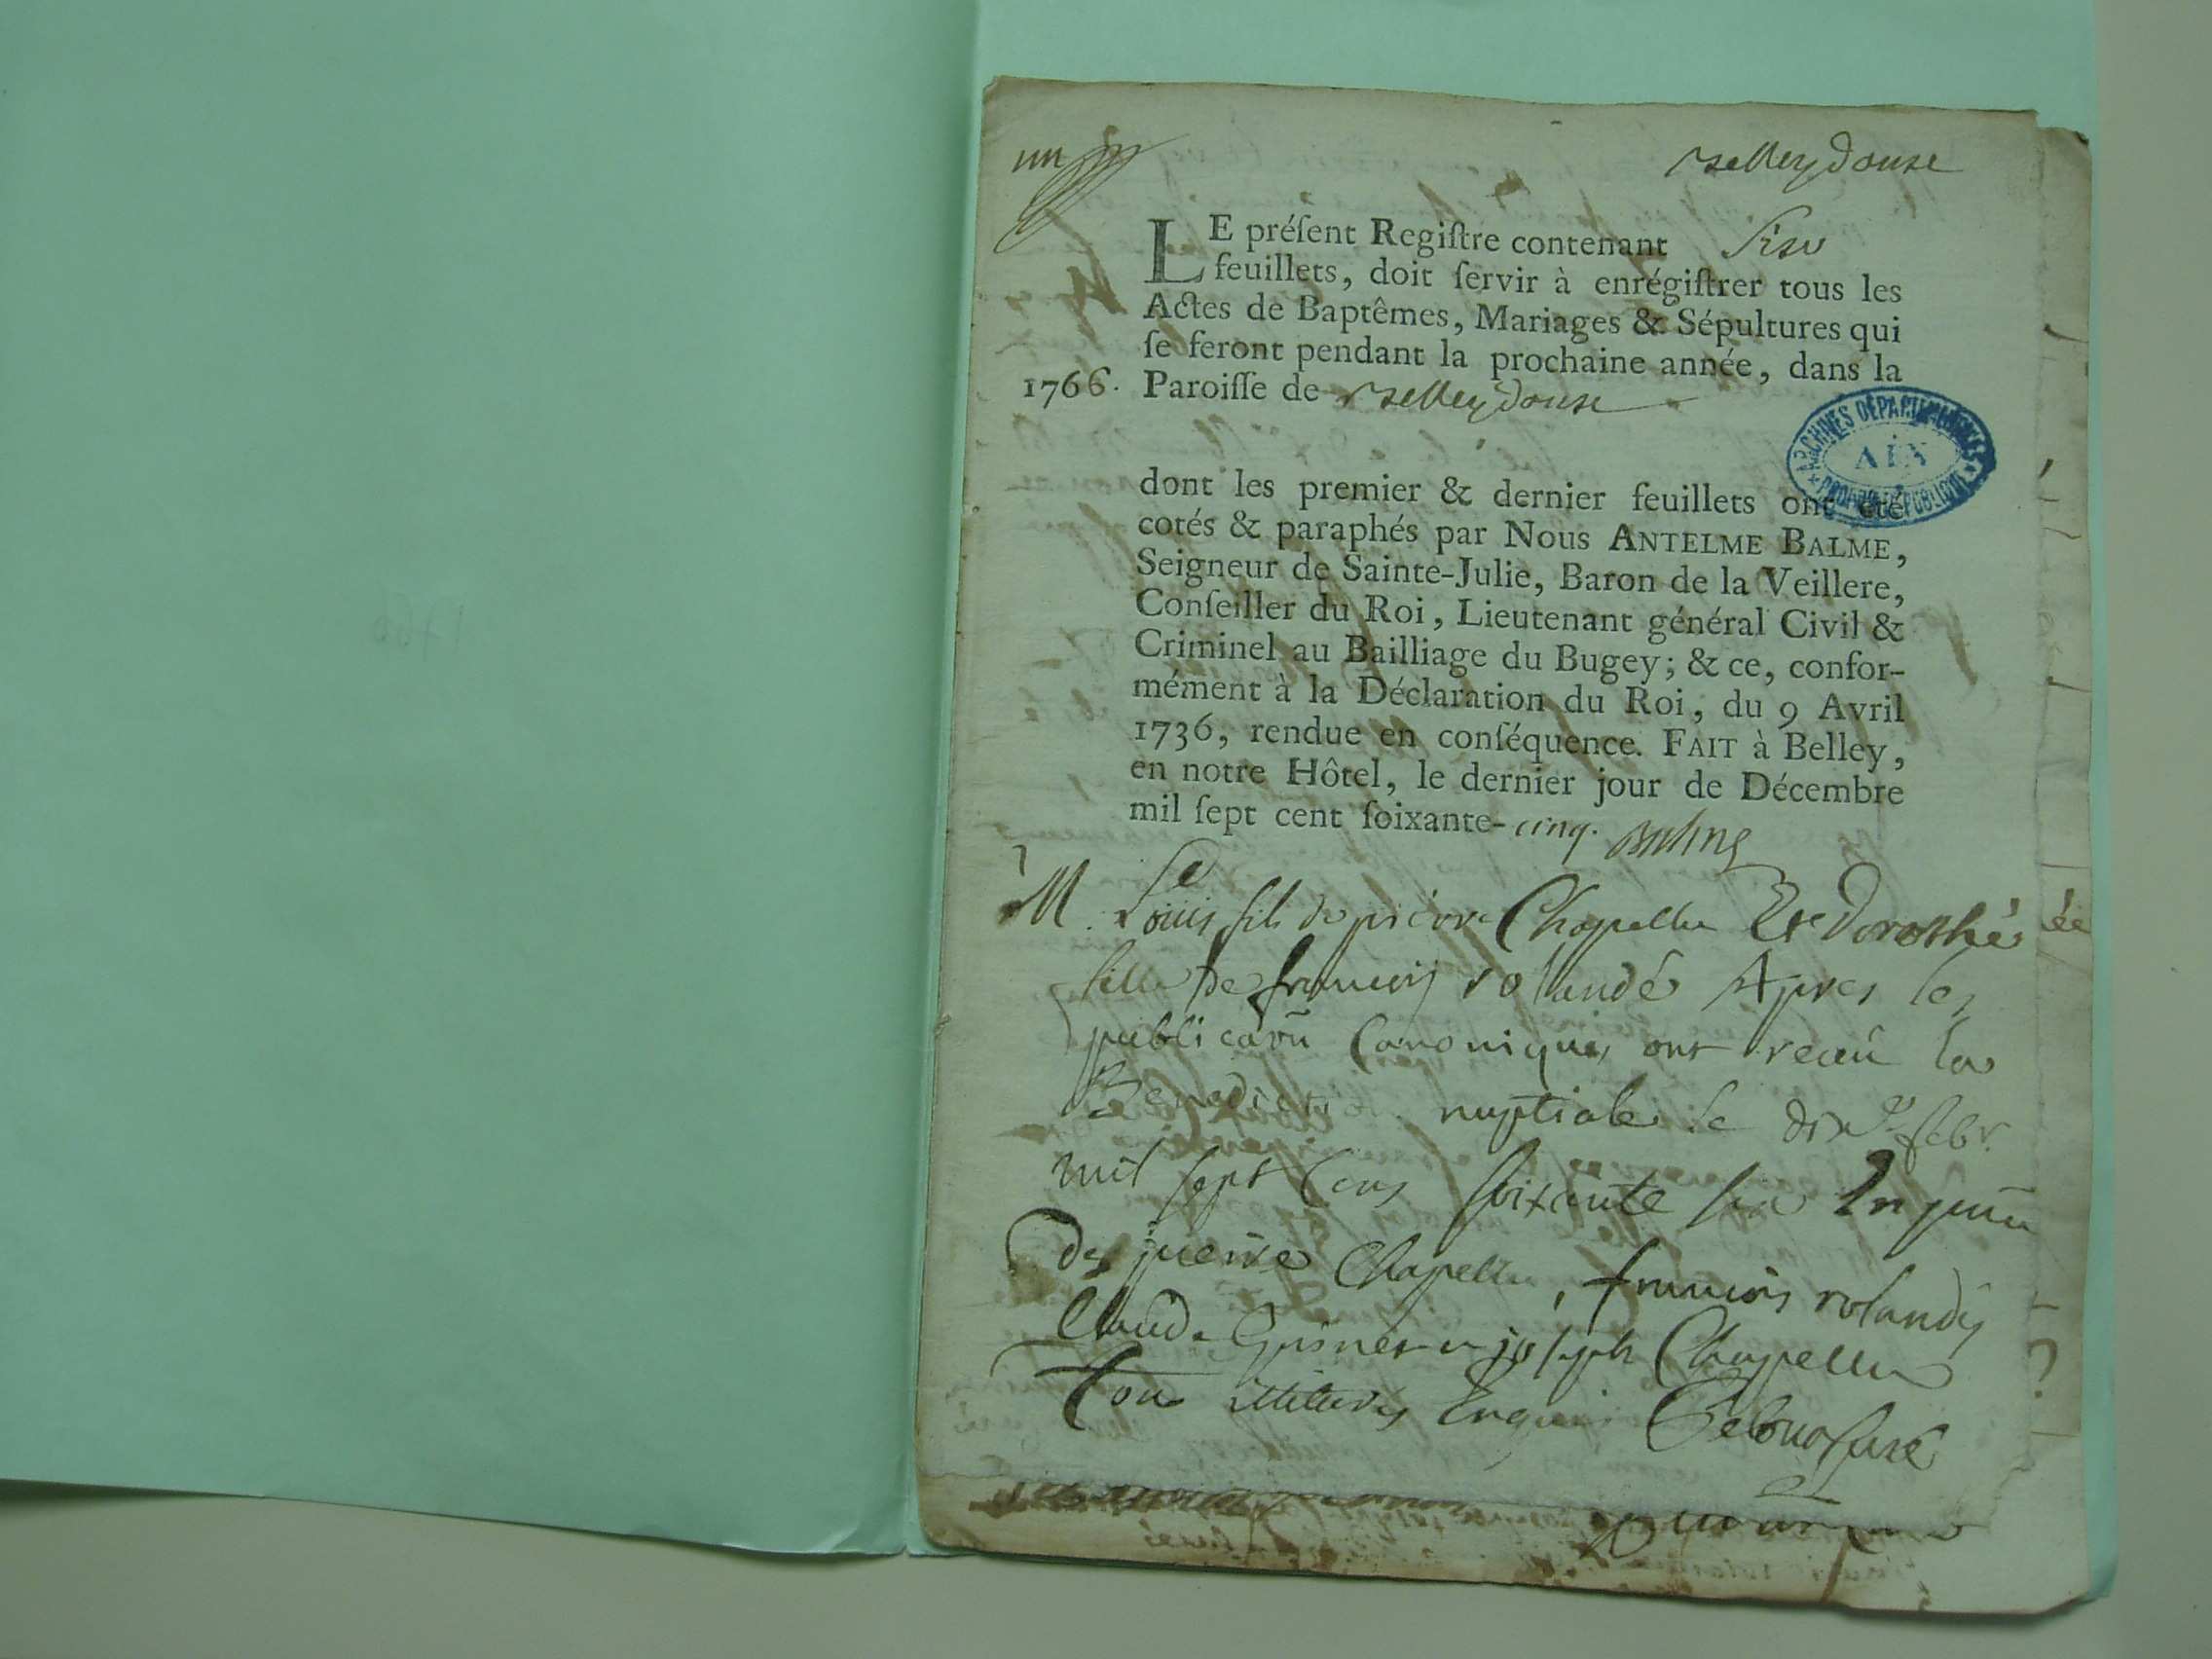 un
Belleydoux
LE préſent Regiſtre contenant Six
feuillets, doit ſervir à enrégiſtrer tous les
Actes de Baptêmes, Mariages & Sépultures qui
ſe feront pendant la prochaine année, dans la
1766. Paroiſſe de Belleydoux
ARCHIVES DÉPARTEMENTALES
AIN
dont les premier & dernier feuillets ont été
cotés & paraphés par Nous ANTELME BALME,
Seigneur de Sainte-Julie, Baron de la Veillere,
Conſeiller du Roi, Lieutenant général Civil &
Criminel au Bailliage du Bugey; & ce, confor-
mément à la Déclaration du Roi, du 9 Avril
1736, rendue en conſéquence. FAIT à Bellay,
en notre Hôtel, le dernier jour de Décembre
mil ſept cent ſoixante-cinq. Balme
M. Louis fils de pierre Chapellu Et Dorothé
fille de francois rolandé Apres les
publicaõn Canoniques ont receu la
Benediction nuptiale le dix febr.
mil sept cens soixante six En
de pierre Chapellu, francois rolandy
Claude joseph Chapellu
tous illiteres Enquis curé